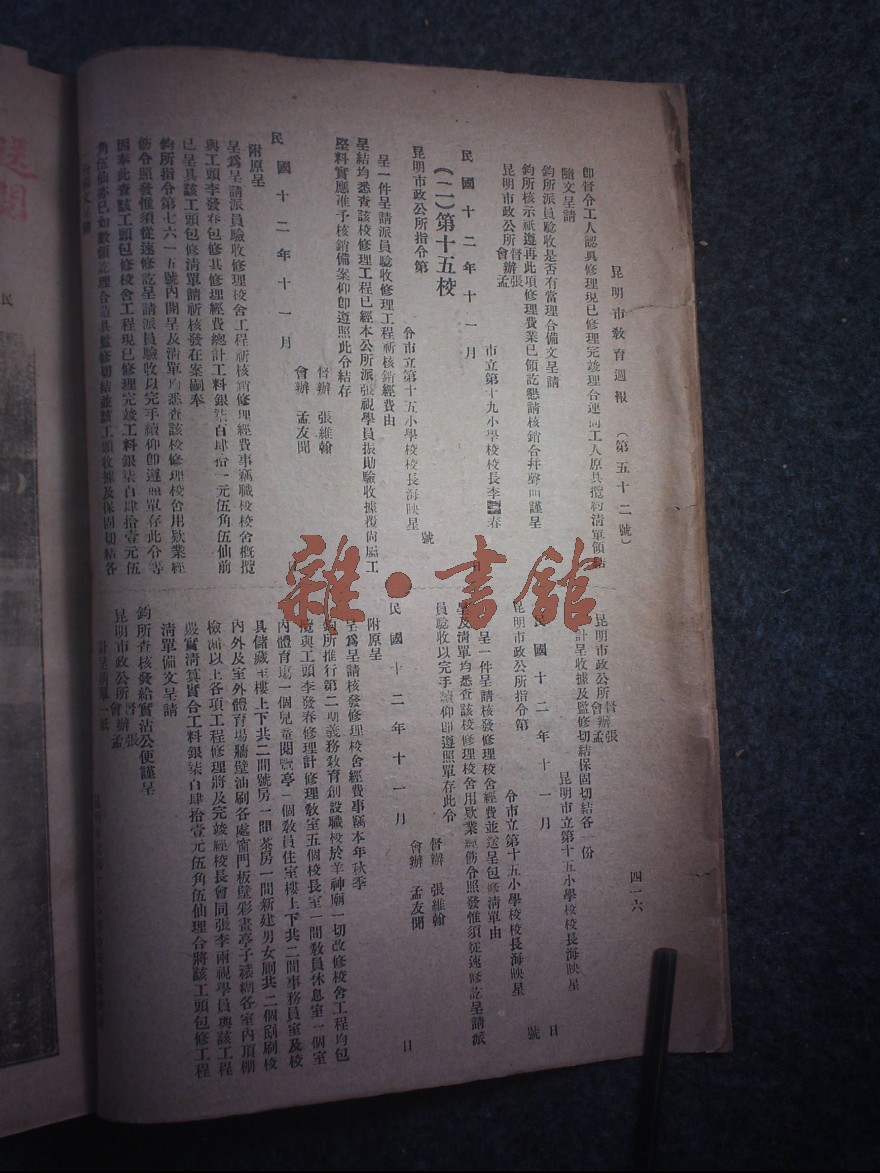 昆明市教育週報 (第五十二號)
四一六
即督令工人認眞修理現已修理完竣理合連同工人原具攬約清單領結
隨文呈請
鈞所派員驗收是否有當理合備文呈請
鈞所核示祇遵再此項修理費業已領訖懇請核銷合幷聲明謹呈
昆明市政公所督辦張
會辦孟
市立第十九小學校校長李 春
民國十二年十一月 日
(二)第十五校
昆明市政公所指令第 號
令市立第十五小學校校長海映星
呈一件呈請派員驗收修理工程祈核銷經費由
呈結均悉查該校修理工程已經本公所派張視學員振勛驗收據覆尙屬工
堅料實應准予核銷備案仰卽遵照此令結存
督辦 張維翰
會辦 孟友聞
民國十二年十一月 日
附原呈
呈爲呈請派員驗收修理校舍工程祈核銷修理經費事竊職校校舍槪攬
與工頭李發春包修其修理經費總計工料銀柒百肆拾一元伍角伍仙前
已呈具該工頭包修清單請祈核發在案嗣奉
鈞所指令第七六一五號內開呈及清單均悉查該校修理校舍用欵業經
飭令照發惟須從速修訖呈請派員驗收以完手續仰卽遵照單存此令等
因奉此查該工頭包修校舍工程現已修理完竣工料銀柒百肆拾壹元伍
角伍仙亦已如數領訖理合造具監修切結並該工頭收據及保固切結各
備文呈請
昆明市政公所督辦張
會辦孟
計呈收據及監修切結保固切結各一份
昆明市立第十五小學校校長海映星
民國十二年十一月 日
昆明市政公所指令第 號
令市立第十五小學校校長海映星
呈一件呈請核發修理校舍經費並送呈包修清單由
呈及清單均悉查該校修理校舍用欵業經飭令照發惟須從速修訖呈請派
員驗收以完手續仰卽遵照單存此令
督辦 張維翰
會辦 孟友聞
民國十二年十一月 日
附原呈
呈爲呈請核發修理校舍經費事竊本年秋季
鈞所推行第二期義務教育創設職校於羊神廟一切改修校舍工程均包
攬與工頭李發春修理計修理教室五個校長室一間教員休息室一個室
內體育塲一個兒童閱覽亭一個教員住室樓上下共二間事務員室及校
具儲藏室樓上下共二間號房一間茶房一間新建男女厠共二個刷刷校
內外及室外體育場牆壁油刷各處窗門板壁彩畫亭子裱糊各室內頂棚
檢漏以上各項工程修理將及完竣經校長會同張李兩視學員與該工程
嚴實清算實合工料銀柒百肆拾壹元伍角伍仙理合將該工頭包修工程
清單備文呈請
鈞所查核發給實沾公便謹呈
昆明市政公所督辦張
會辦孟
計呈清單一紙
雜·書館
民